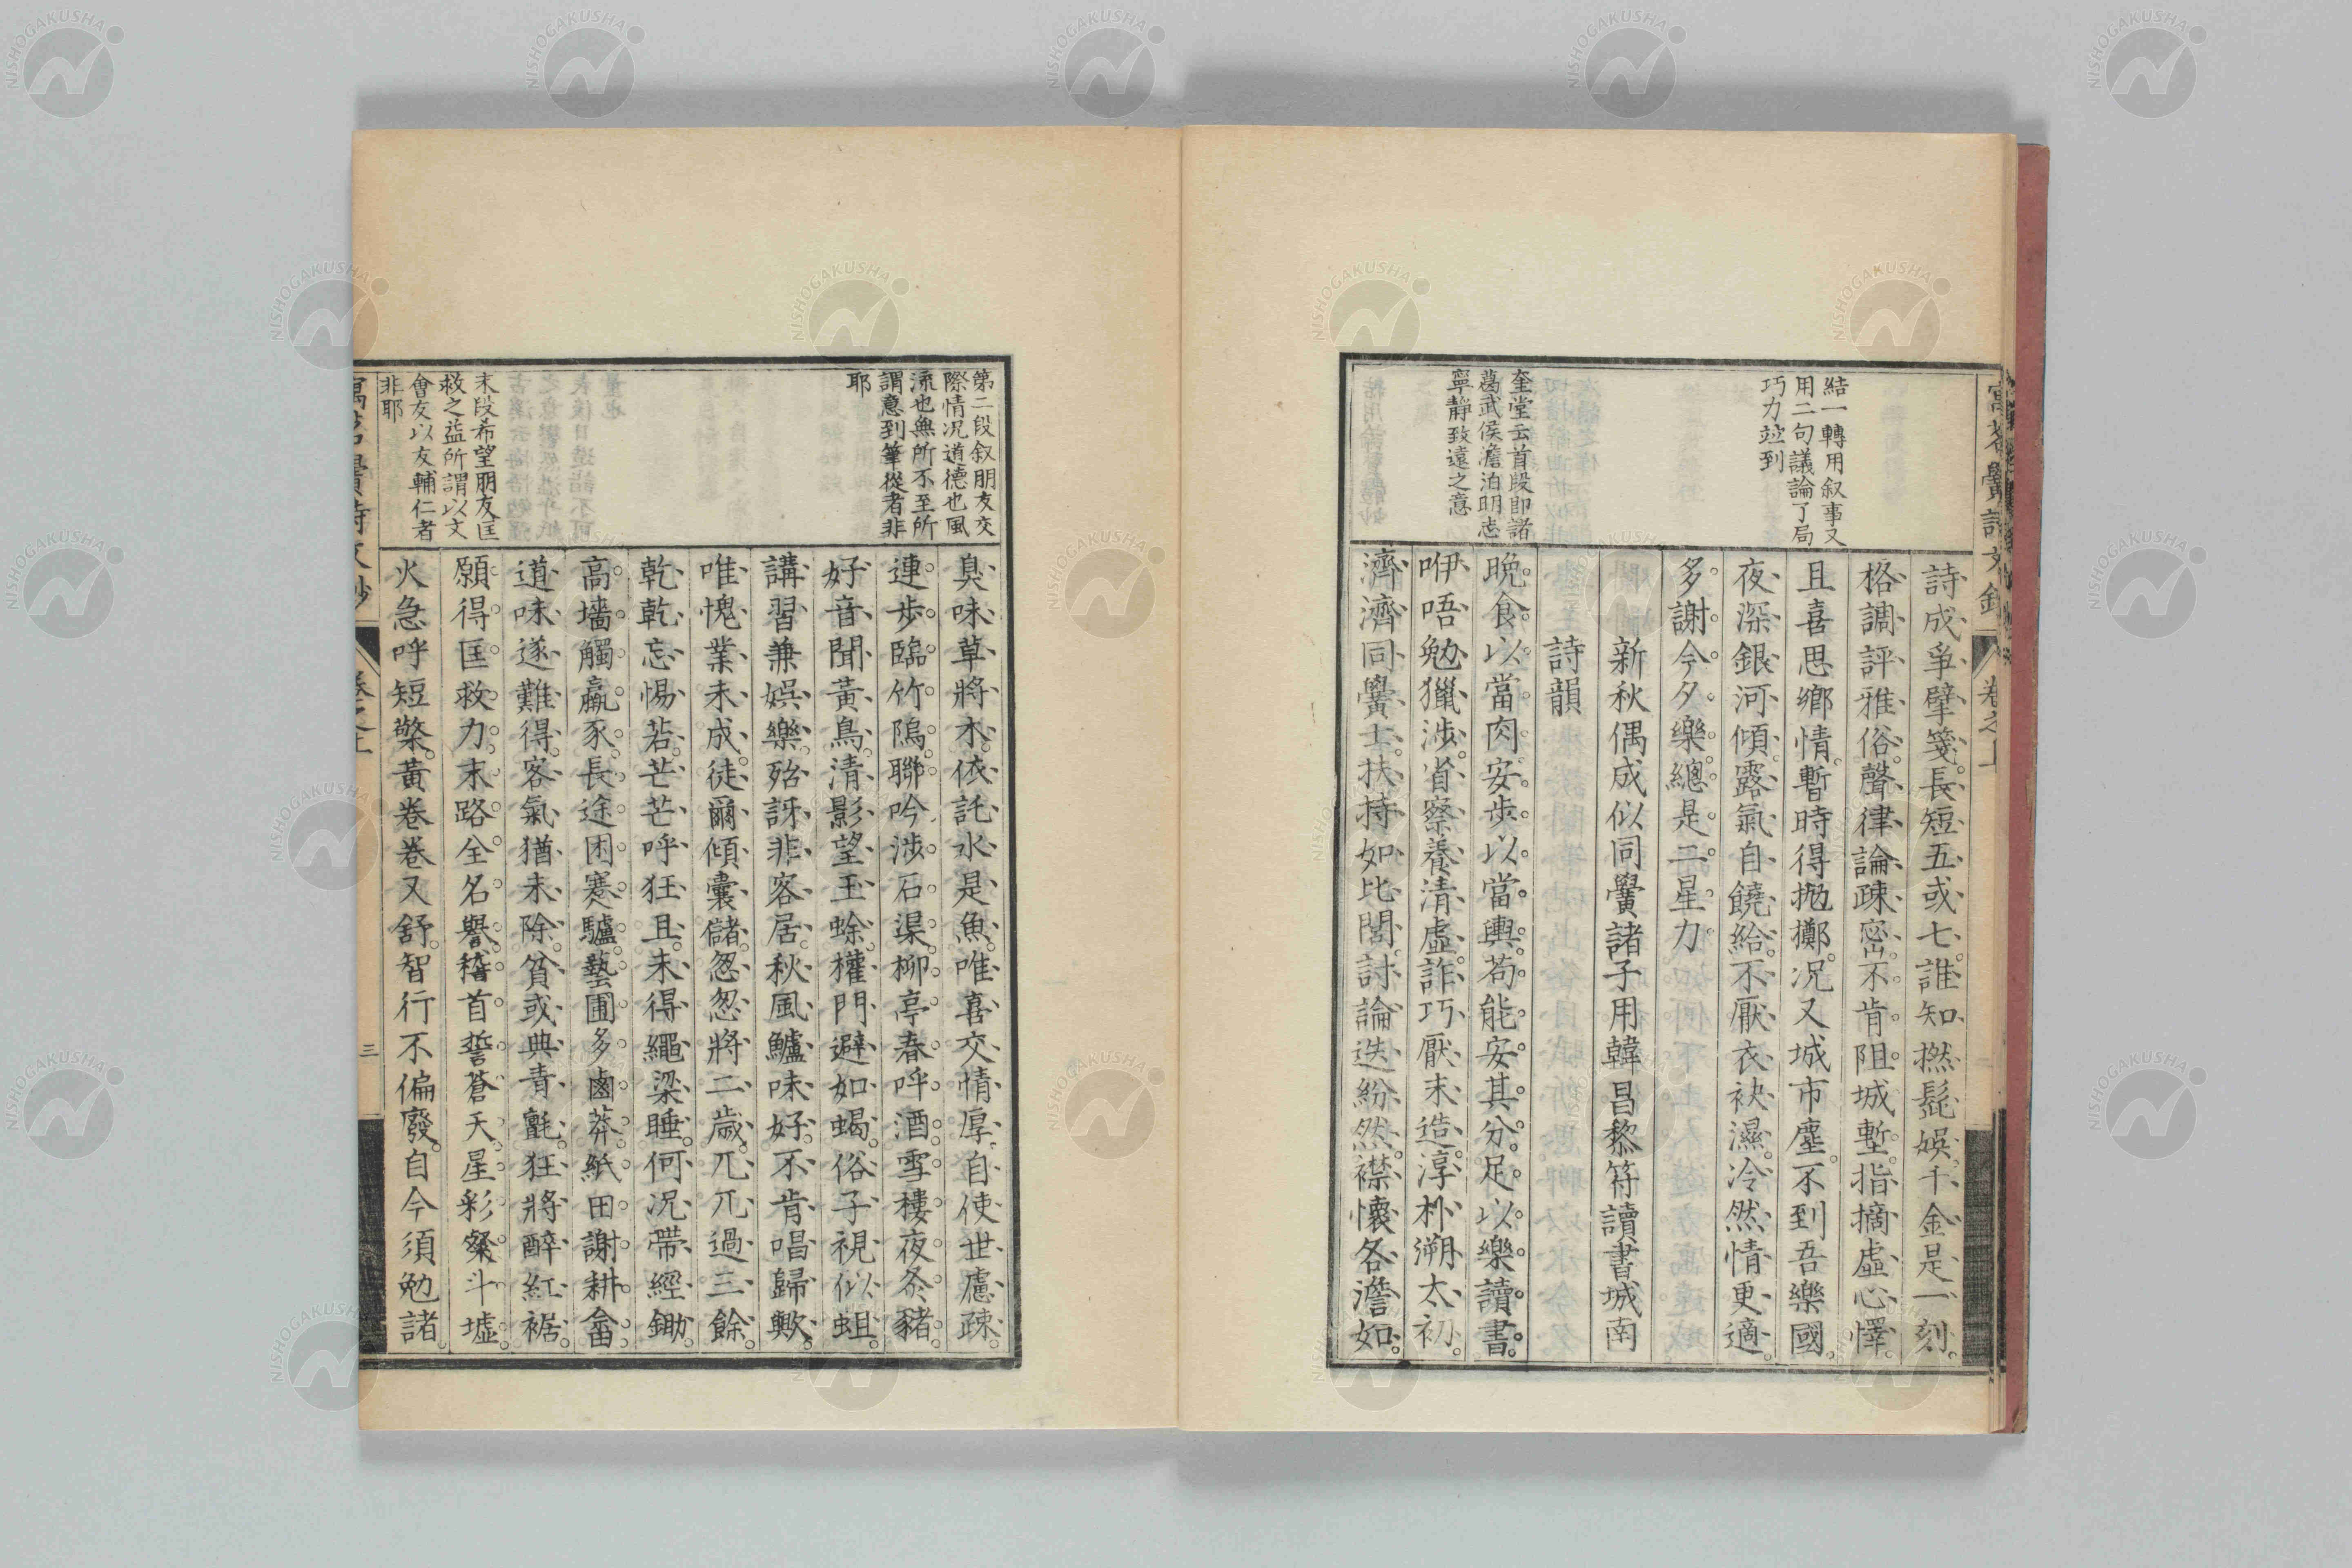 結一轉用叙事又
用二句議論了局
巧力竝到
奎堂云首段即諸
葛武侯澹泊明志
寧靜致遠之意
詩成爭擘箋長短五或七誰知撚髭娛千金是一刻
格調評雅俗聲律論疎密不肯阻城塹指摘虛心懌
且喜思鄉情暫時得抛擲況又城市塵不到吾樂國
夜深銀河傾露氣自饒給不厭衣袂濕冷然情更適
多謝今夕樂總是二星力
新秋偶成似同黌諸子用韓昌黎符讀書城南
詩韻
晩食以當肉安步以當輿苟能安其分足以樂讀書
咿唔勉獵涉省察養清虛詐巧厭末造淳朴溯太初
濟濟同黌士扶持如比閭討論迭紛然襟懷各澹如
卷之上
第二段叙朋友交
際情況道德也風
流也無所不至所
謂意到筆從者非
耶
末段希望朋友匡
救之益所謂以文
會友以友輔仁者
非耶
臭味草將木依託水是魚唯喜交情厚自使世慮疎
連步臨竹隖聯吟涉石渠柳亭春呼酒雪樓夜炙豬
好音聞黃鳥清影望玉蜍權門避如蝎俗子視似蛆
講習兼娯樂殆訝非客居秋風鱸味好不肯唱歸歟
唯愧業未成徒爾傾囊儲忽忽將二歲兀兀過三餘
乾乾忘惕若芒芒呼狂且未得繩梁睡何況帶經鋤
高墻觸羸豕長途困蹇驢藝圃多鹵莽紙田謝耕畬
道味遂難得客氣猶未除貧或典靑氈狂將醉紅裾
願得匡救力末路全名譽稽首誓蒼天星彩粲斗墟
火急呼短檠黃卷卷又舒智行不偏廢自今須勉諸
三